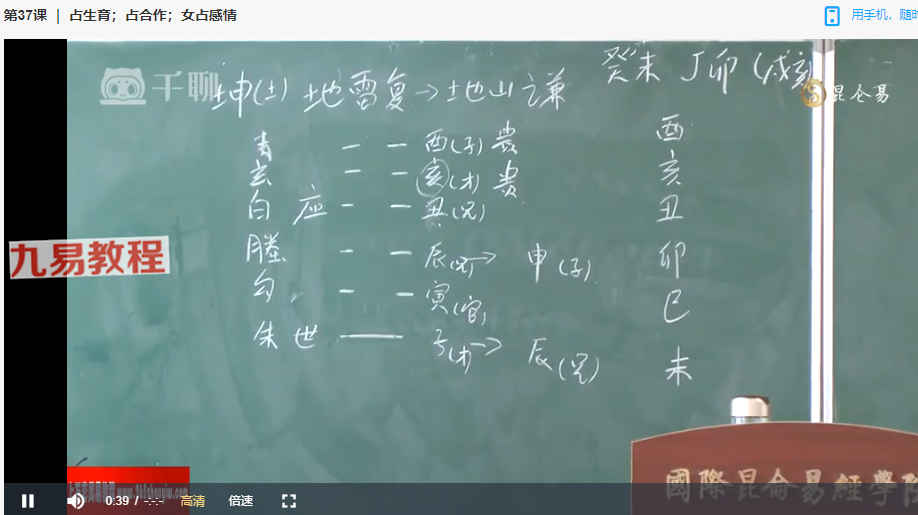 第37课 | 占生育；占合作；女占感情
用手机，随时
千聊
坤(土) 地雷复→地山谦 癸未 丁卯 (戌亥)
昆仑易
青 酉(子) 贵 酉
玄 亥(才) 贵 亥
白 应 丑(兄) 丑
螣 辰(兄)→ 申(子) 卯
勾 寅(官) 巳
朱 世 子(才)→ 辰(兄) 未
九易教程
國際昆侖易經學院
0:39 / -:-:- 高清 倍速